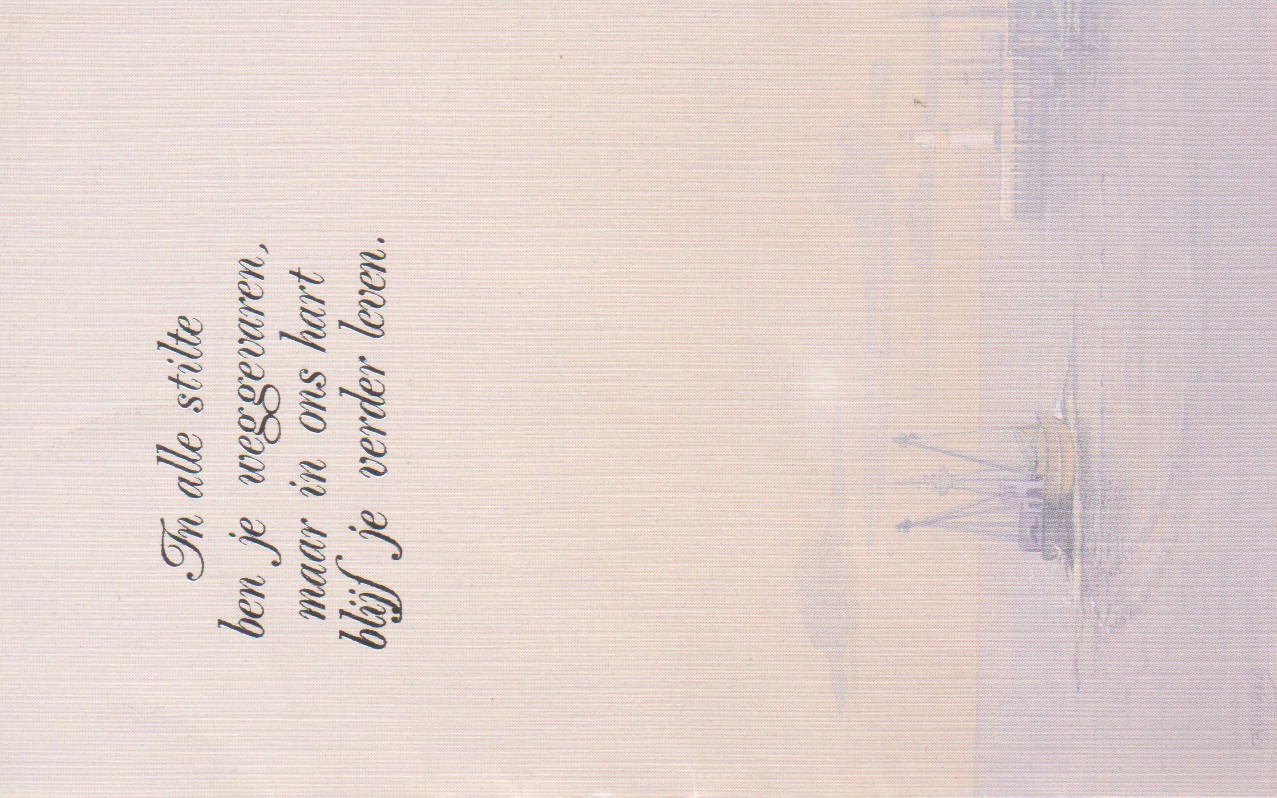 In alle stilte
ben je weggevaren,
maar in ons hart
blijf je verder leven.